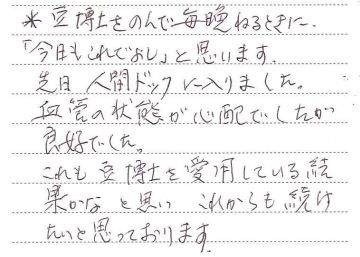 ＊豆博士をのんで毎晩ねるときに、
「今日もこれでよし」と思います。
先日 人間ドックに入りました。
血管の状態が心配でしたが
良好でした。
これも 豆博士を愛用している結
果かな と思い これからも 続け
たいと思っております。